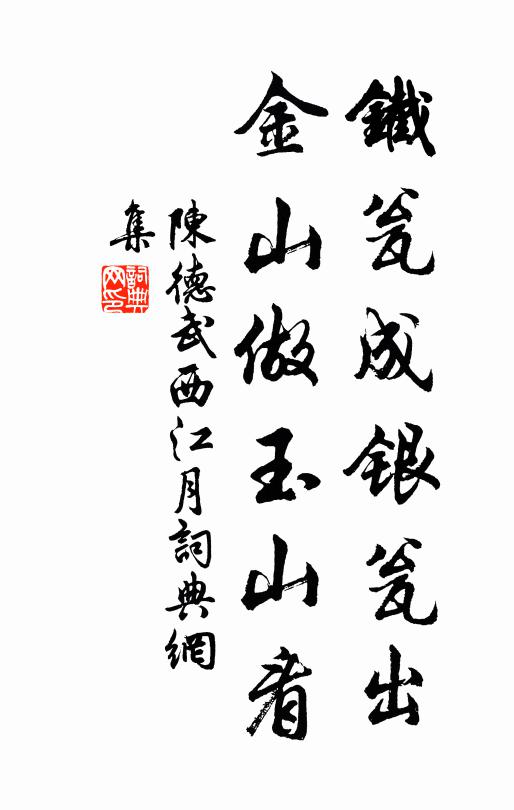 鐵瓮成銀瓮出
金山做玉山看
陳德武西江月詞典網
集
詞典网印